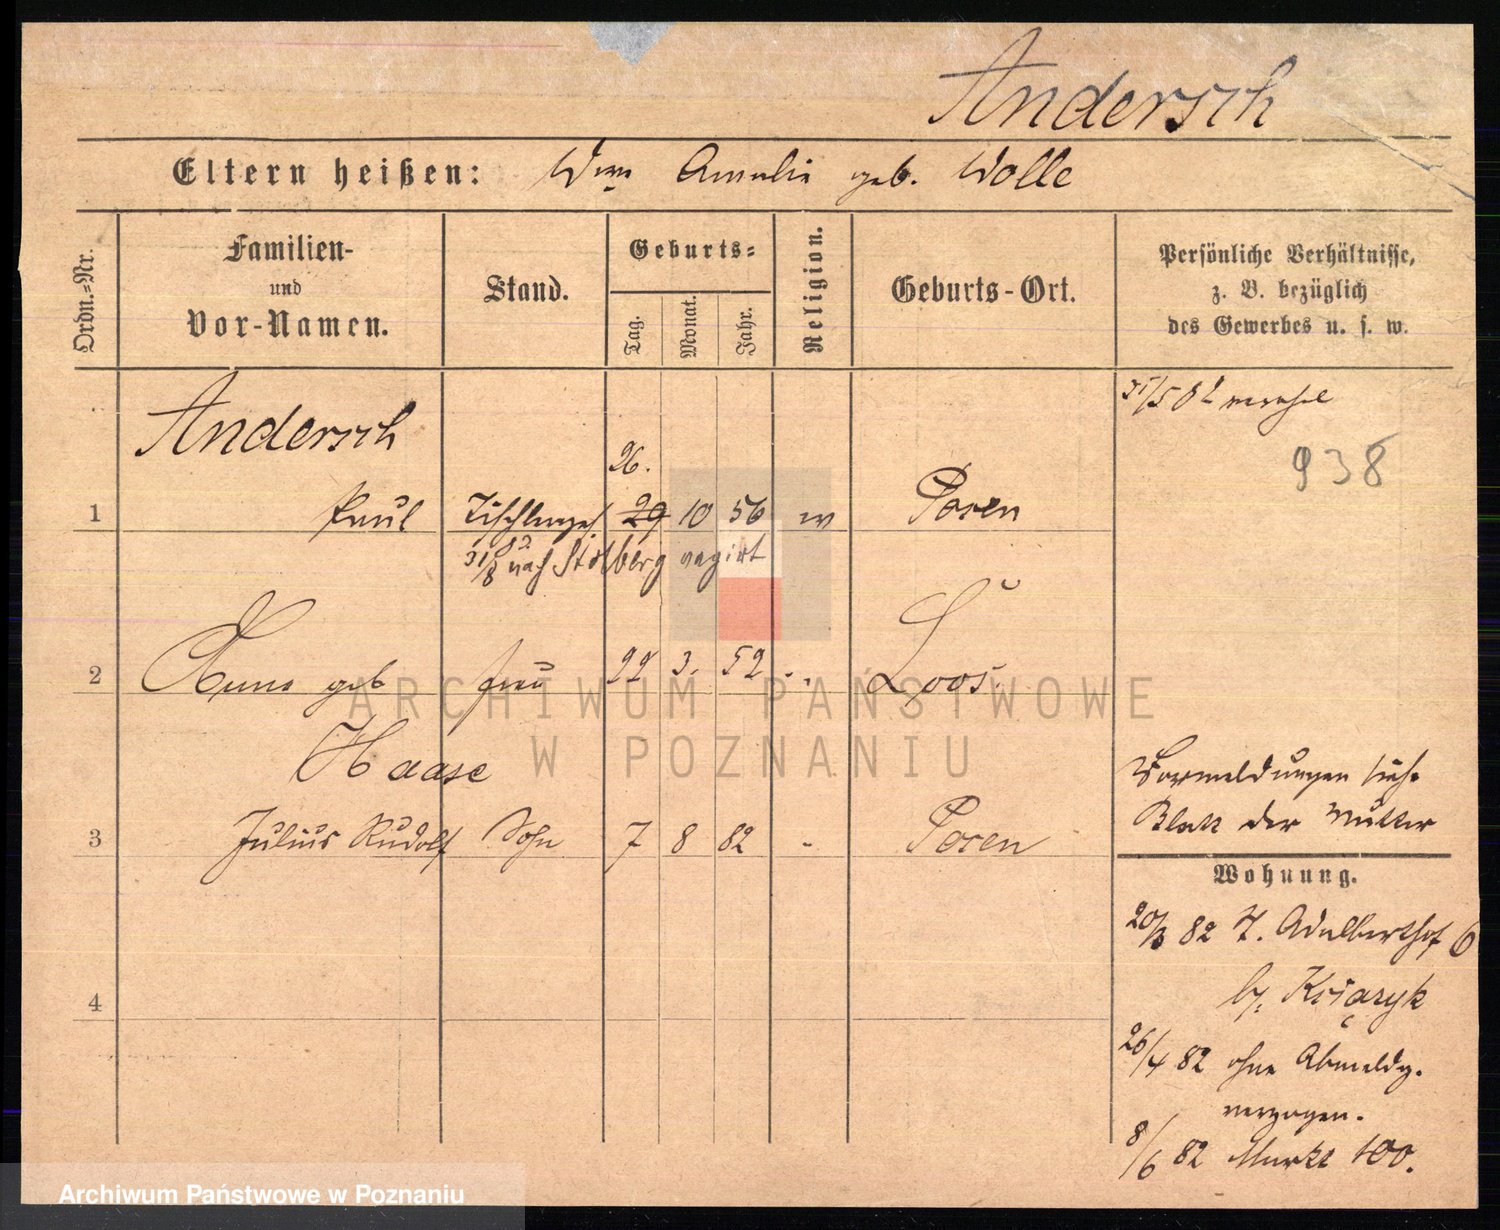 Andersch
Eltern heißen: Wwe Amalie geb. Wolle
Ordn.=Nr.
Familien-
und
Vor-Namen.
Stand.
Geburts=
Tag.
Monat.
Jahr.
Religion.
Geburts-Ort.
Persönliche Verhältnisse,
z. B. bezüglich
des Gewerbes u. s. w.
Andersch
938
26.
1 Paul Tischlerges 29 10 56 Posen
nach Stolberg
2 geb frau 22 3. 52 Loos.
Haase
Vormeldungen siehe
Blatt der Mutter
3 Julius Rudolf Sohn 7 8 82 - Posen
Wohnung.
82 Adalberthof 6
4
26/4 82 ohne Abmeldg.
verzogen.
8/6 82 Markt 100.
ARCHIWUM PAŃSTWOWE
W POZNANIU
Archiwum Państwowe w Poznaniu